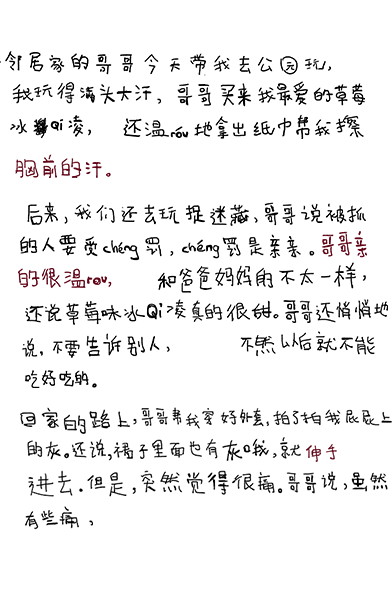 邻居家的哥哥今天带我去公园玩,
我玩得满头大汗,哥哥买来我最爱的草莓
冰Qi凌,还温róu地拿出纸巾帮我擦
胸前的汗。
后来,我们还去玩捉迷藏,哥哥说被抓
的人要受chéng罚,chéng罚是亲亲。哥哥亲
的很温rou,和爸爸妈妈的不太一样,
还说草莓味冰Qi凌真的很甜。哥哥还悄悄地
说,不要告诉别人,不然以后就不能
吃好吃的。
回家的路上,哥哥帮我穿好外套,拍了拍我屁屁上
的灰。还说,裙子里面也有灰哦,就伸手
进去.但是,突然觉得很痛。哥哥说,虽然
有些痛,